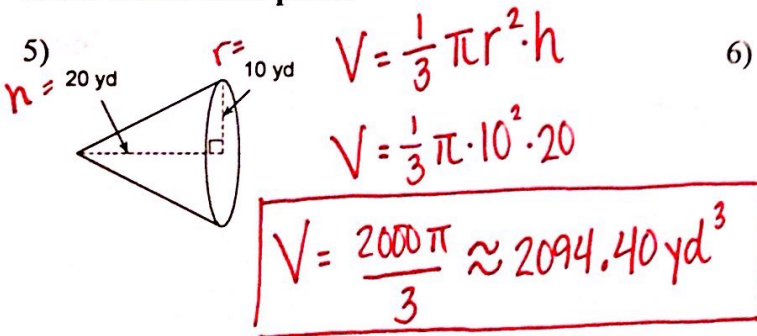 5)
r =
10 yd
h = 20 yd
V = 1/3 πr²·h
6)
V = 1/3 π·10²·20
V = 2000π/3 ≈ 2094.40 yd³